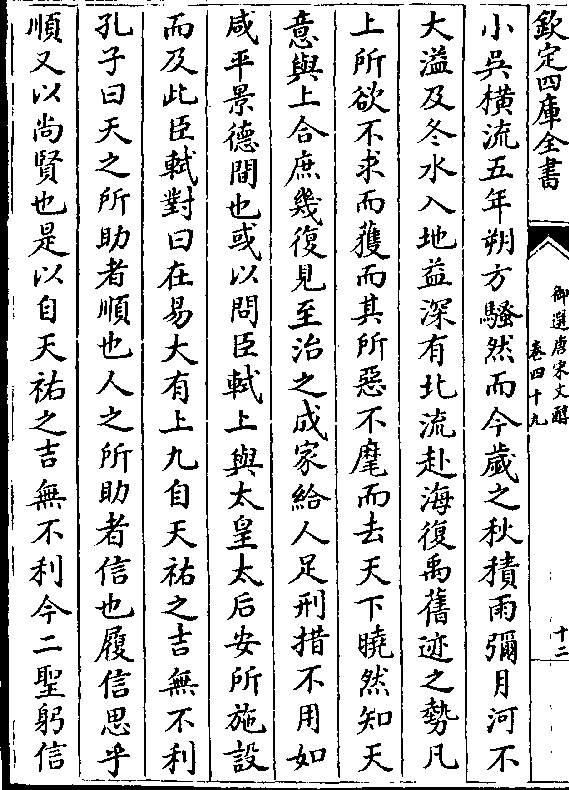 欽定四庫全書
御選唐宋文醇
卷四十九
十二
小吳橫流五年朔方騷然而今歲之秋積雨彌月河不
大溢及冬水入地益深有北流赴海復禹舊迹之勢凡
上所欲不求而獲而其所惡不麾而去天下曉然知天
意與上合庶幾復見至治之成家給人足刑措不用如
咸平景德間也或以問臣軾上與太皇太后安所施設
而及此臣軾對曰在易大有上九自天祐之吉無不利
孔子曰天之所助者順也人之所助者信也履信思乎
順又以尚賢也是以自天祐之吉無不利今二聖躬信